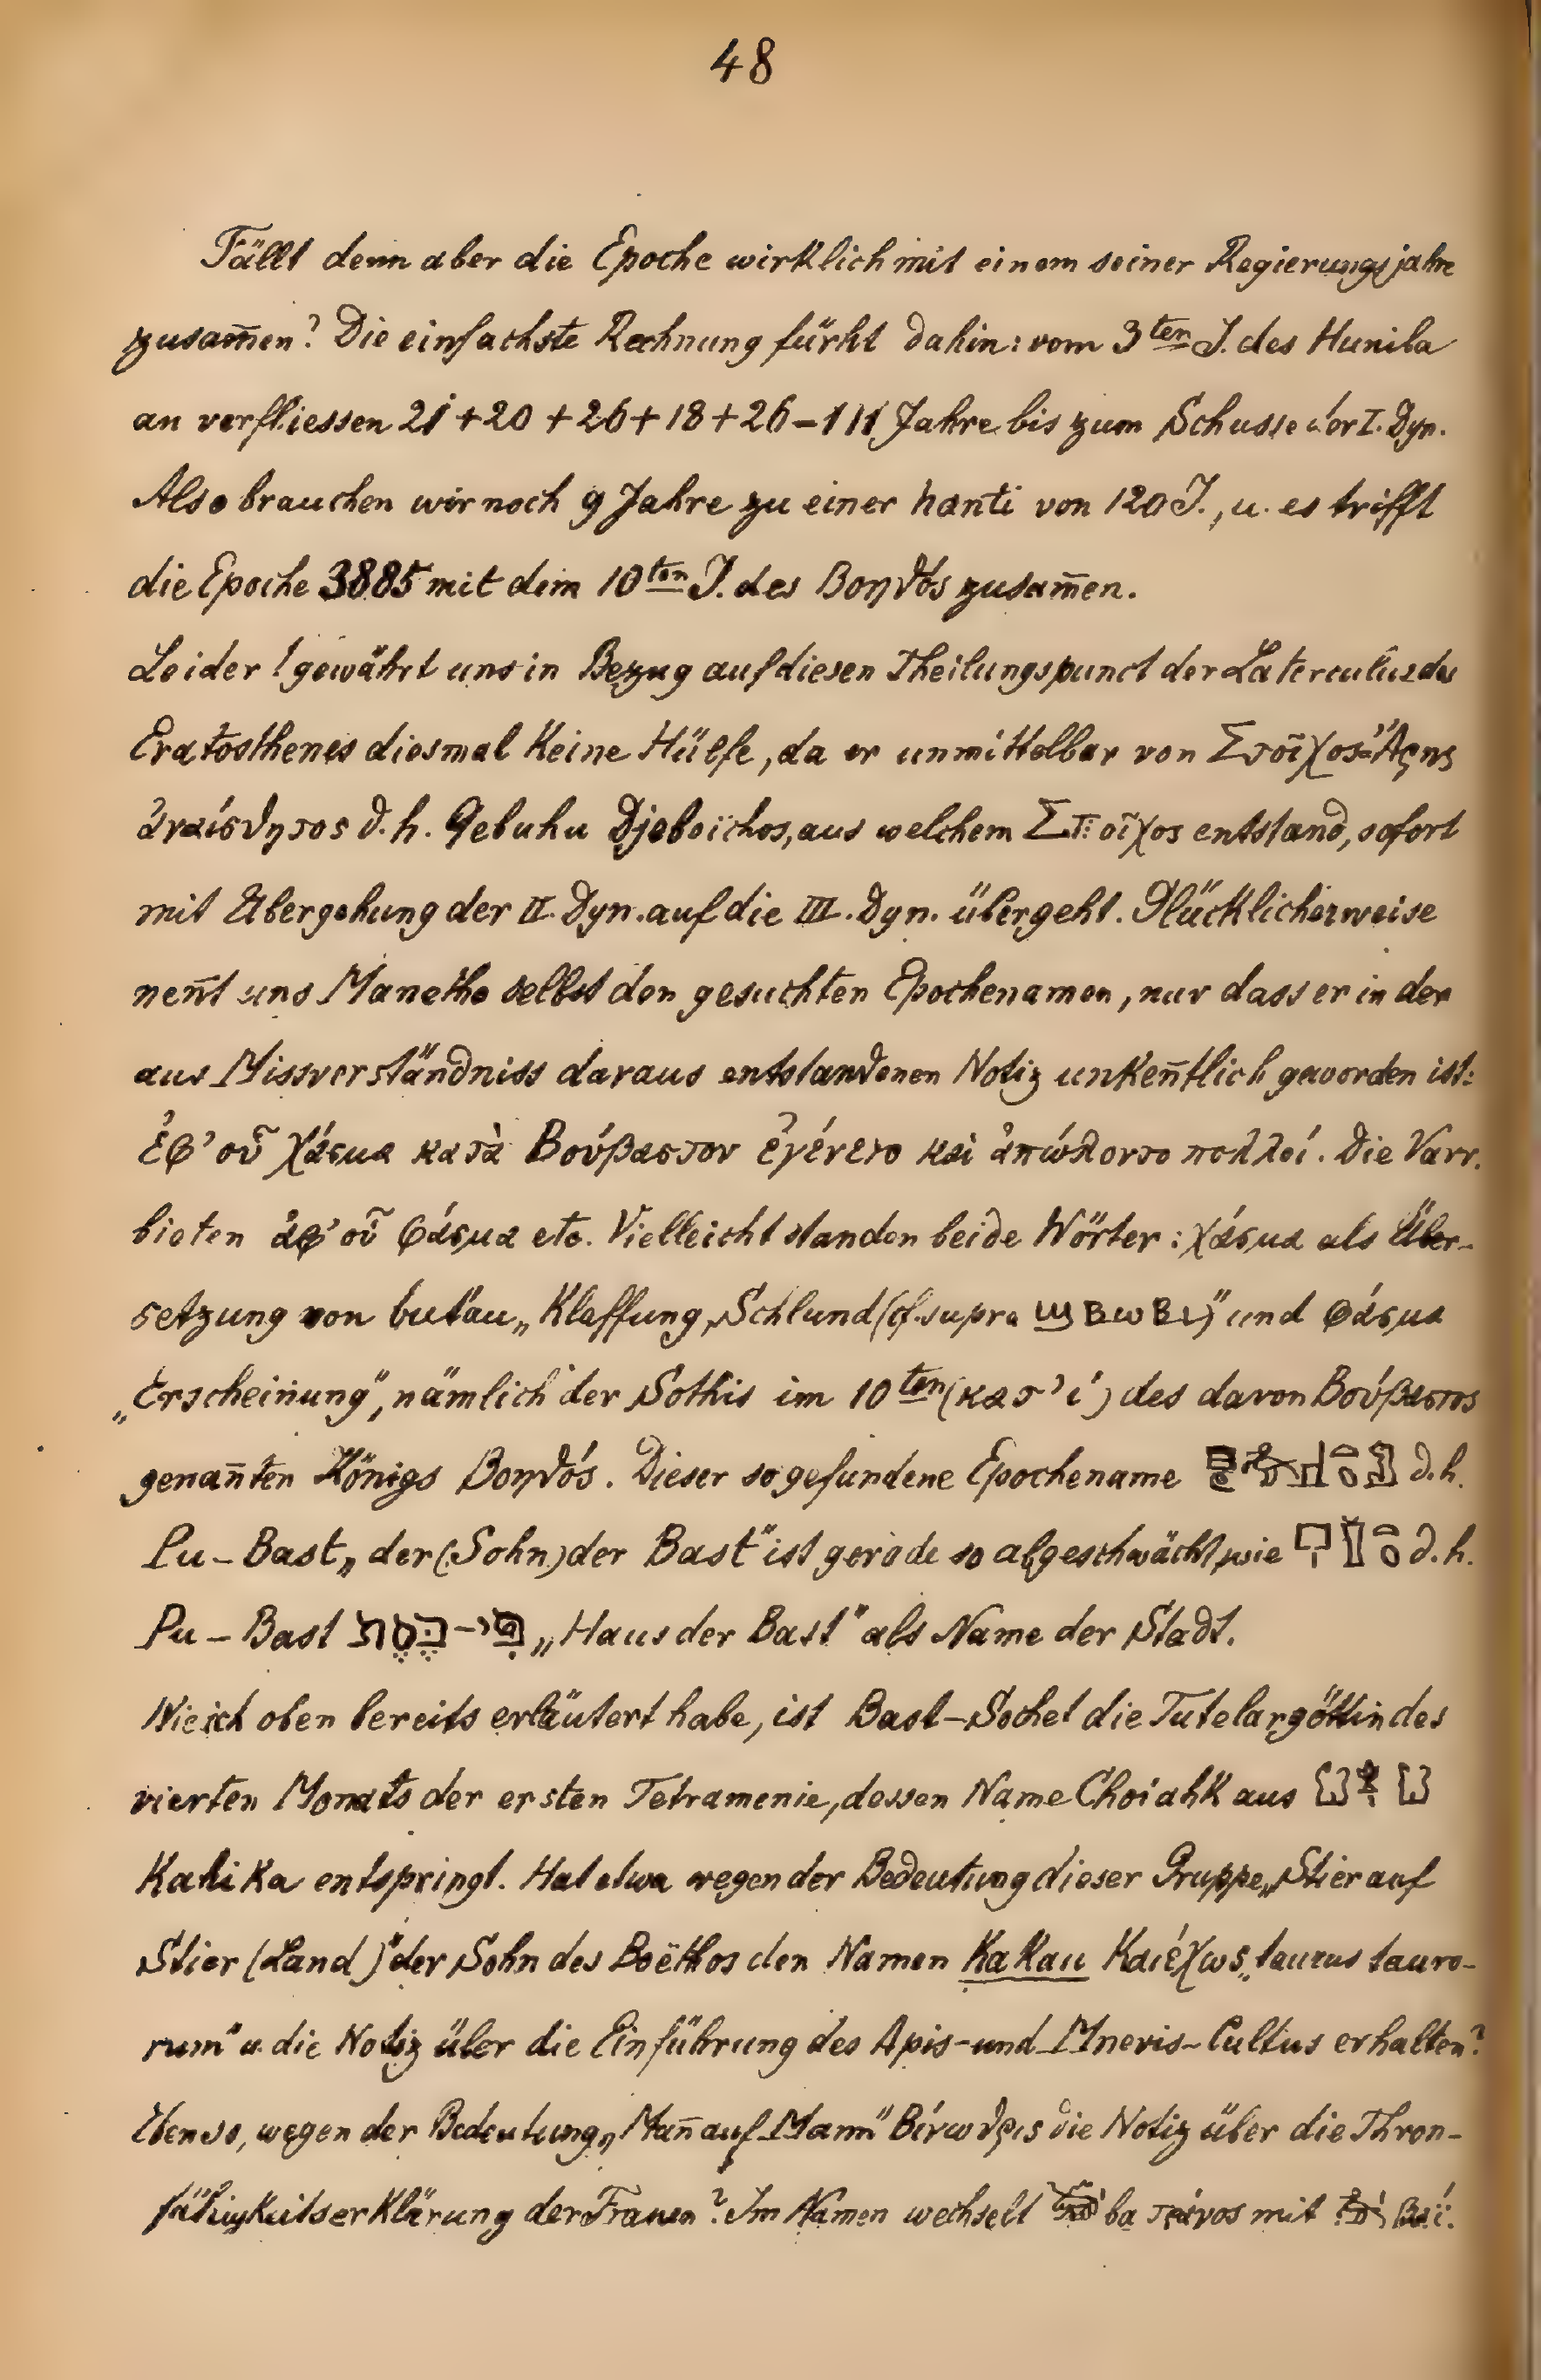 48
Fällt denn aber die Epoche wirklich mit einem seiner Regierungsjahre
zusam̄en? Die einfachste Rechnung führt dahin: vom 3ten J. des Hunila
an verfliessen 21+20+26+18+26=111 Jahre bis zum Schusse der I. Dyn.
Also brauchen wir noch 9 Jahre zu einer hanti von 120 J., u. es trifft
die Epoche 3885 mit dem 10ten J. des Βοηθός zusam̄en.
Leider! gewährt uns in Bezug auf diesen Theilungspunct der Laterculus des
Eratosthenes diesmal keine Hülfe, da er unmittelbar von Στοῖχος=Ἄρης
ἀναίσθητος d.h. Qebuhu Djeboïchos, aus welchem Στοῖχος entstand, sofort
mit Übergehung der II. Dyn. auf die III. Dyn. übergeht. Glücklicherweise
nen̄t uns Manetho selbst den gesuchten Epochenamen, nur dass er in der
aus Missverständniss daraus entstandenen Notiz unken̄tlich geworden ist:
ἐφ' οὗ χάσμα κατὰ Βούβαστον ἐγένετο καὶ ἀπώλοντο πολλοί. Die Varr.
bieten ἀφ' οὗ φάσμα etc. Vielleicht standen beide Wörter: χάσμα als Über-
setzung von butau „Klaffung, Schlund (cf. supra ϣⲃⲱⲃⲓ)" und φάσμα
„Erscheinung", nämlich der Sothis im 10ten (κατ' ί) des davon Βούβαστος
genan̄ten Königs Βοηθός. Dieser so gefundene Epochename d.h.
Pu-Bast „der (Sohn) der Bast" ist gerade so abgeschwächt, wie d.h.
Pu-Bast פִי-בֶסֶת „Haus der Bast" als Name der Stadt.
Wie ich oben bereits erläutert habe, ist Bast-Sochet die Tutelargöttin des
vierten Monats der ersten Tetramenie, dessen Name Choiahk aus
Kahika entspringt. Hat etwa wegen der Bedeutung dieser Gruppe „Stier auf
Stier (Land)" der Sohn des Boëthos den Namen Kakau Καιέχως „taurus tauro-
rum" u. die Notiz über die Einführung des Apis- und Mnevis-Cultus erhalten?
Ebenso, wegen der Bedeutung „Man̄ auf Mann" Βίνωθρις die Notiz über die Thron-
fähigkeitserklärung der Frauen? Im Namen wechselt ba mit